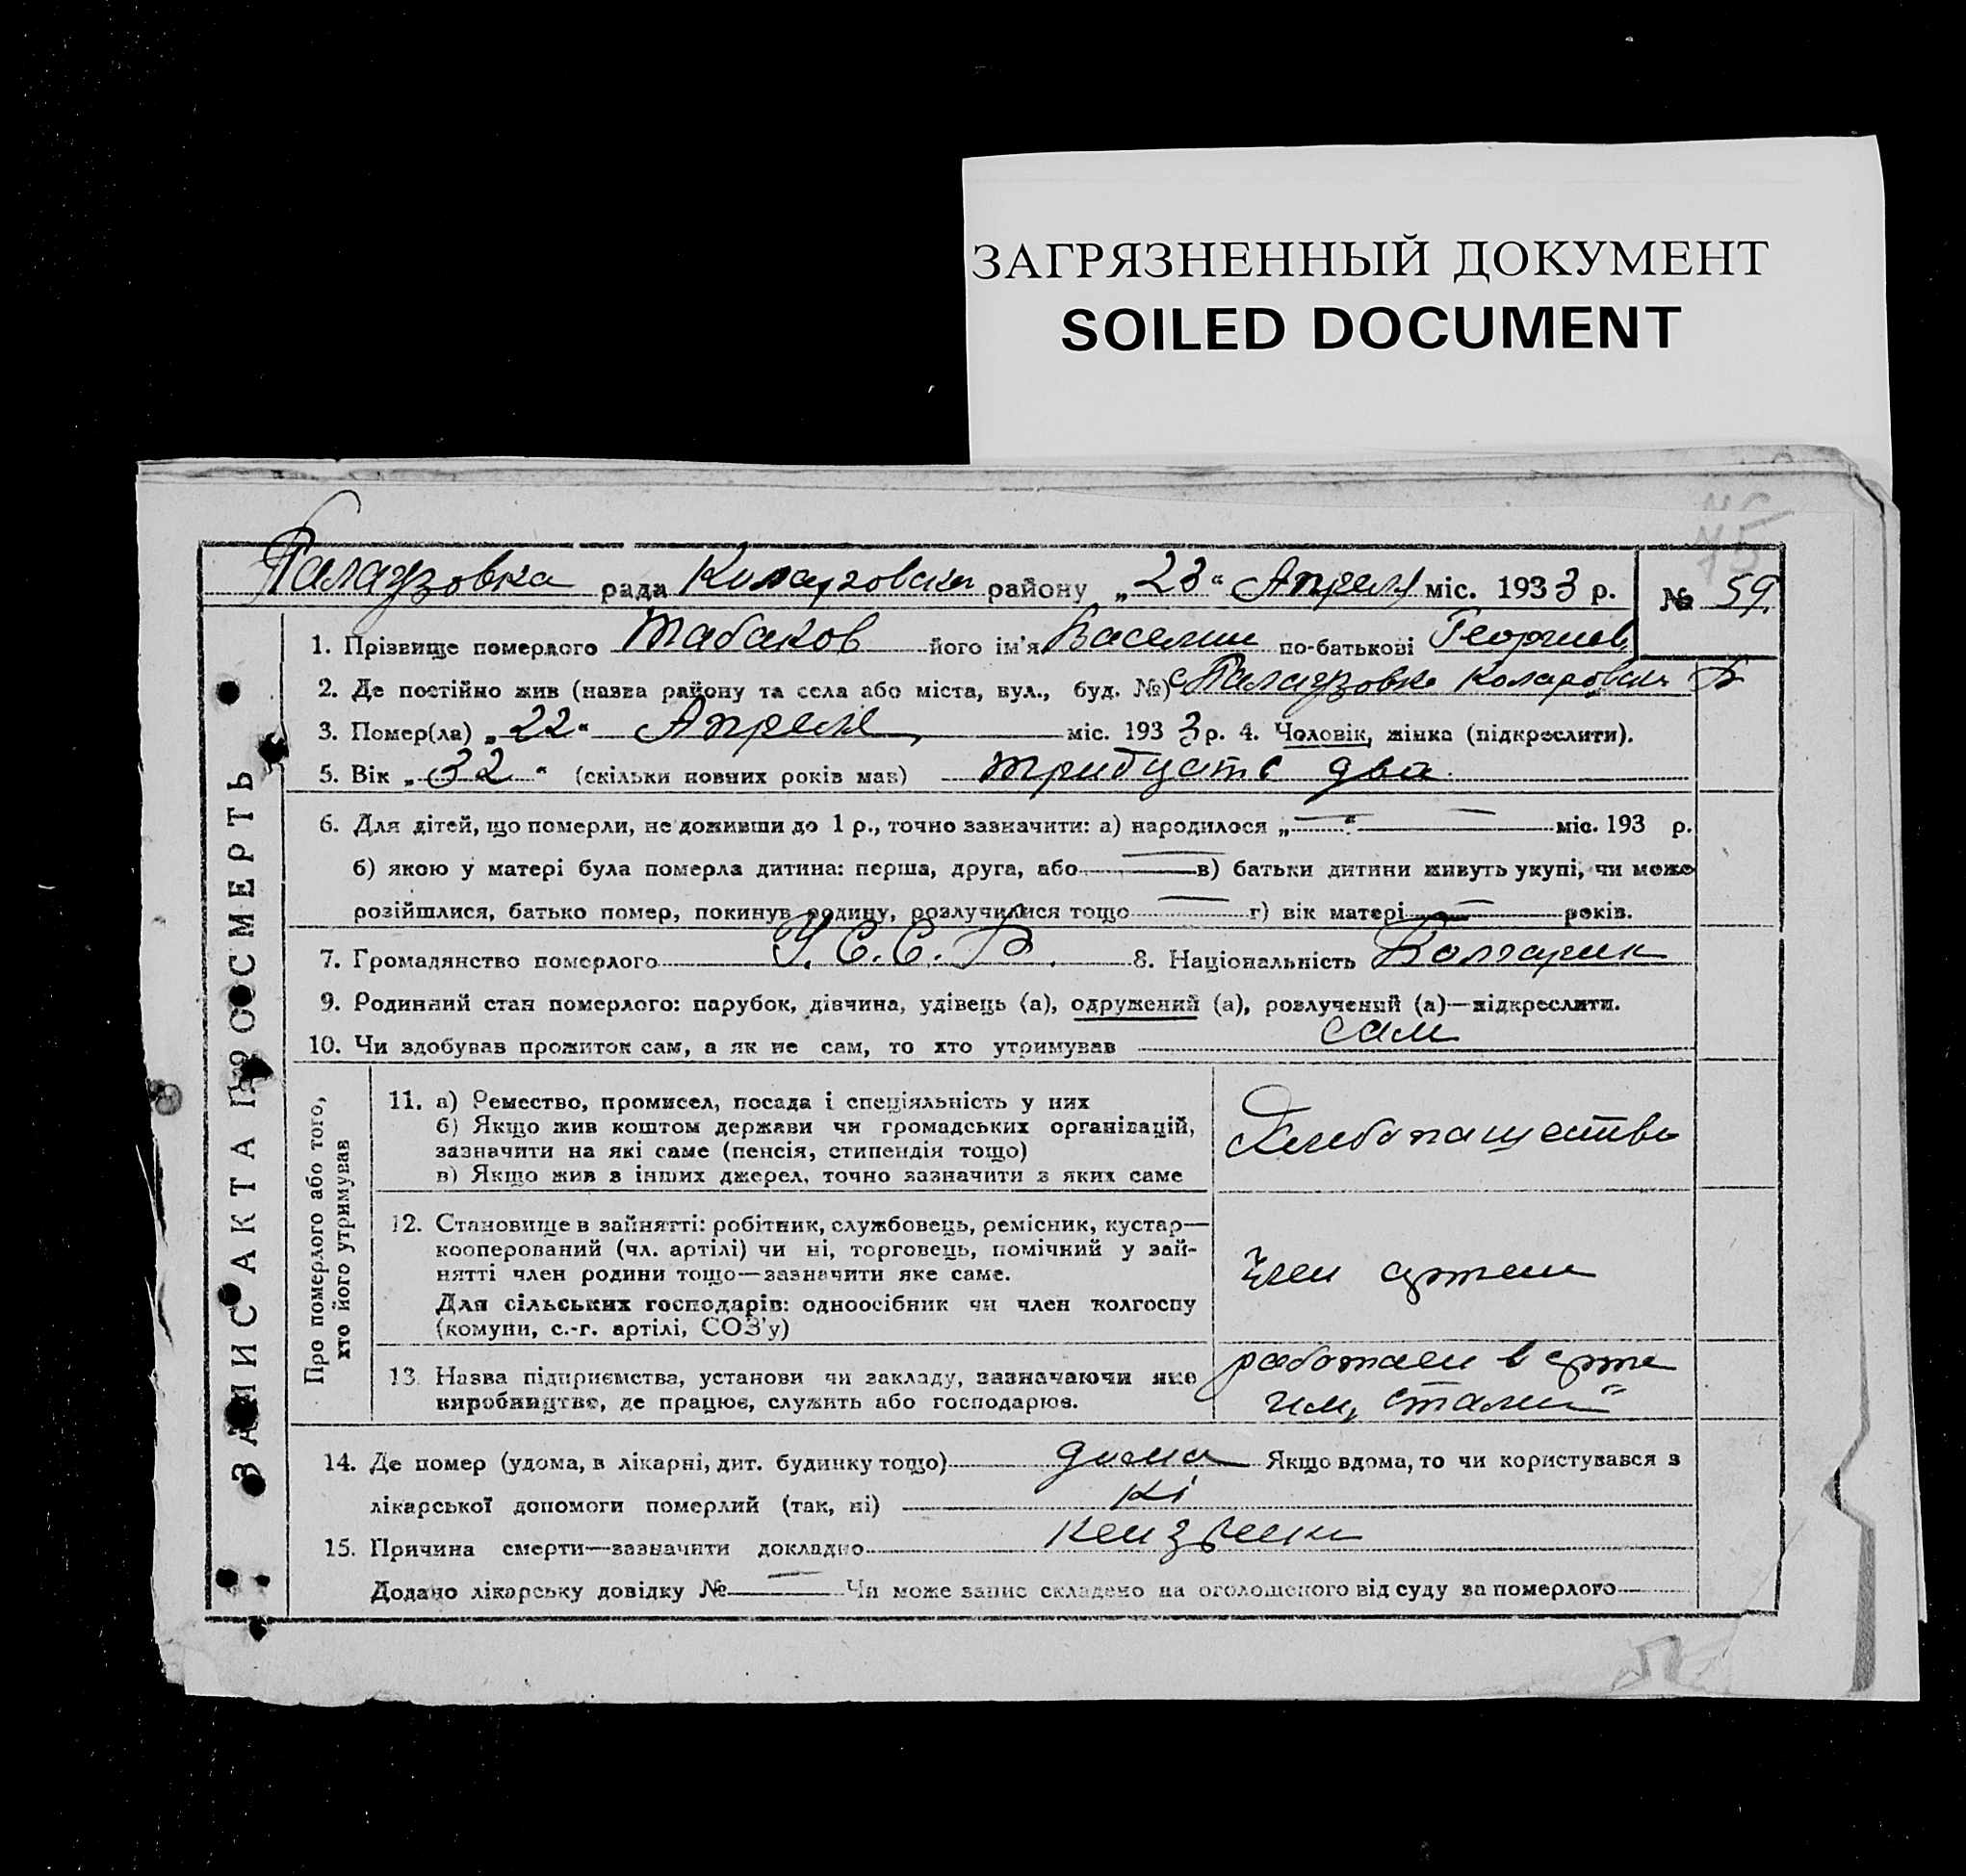 ЗАГРЯЗНЕННЫЙ ДОКУМЕНТ
SOILED DOCUMENT
75
Палаузовка рада Коларовськ району „23“ Апреля міс. 1933 р. № 59.
1. Прізвище померлого Табаков його ім'я Василий по-батькові Георгиев
2. Де постійно жив (назва району та села або міста, вул., буд. №) с Палаузовка Коларовськ Р
3. Помер(ла) „22“ Апреля міс. 1933 р. 4. Чоловік, жінка (підкреслити).
5. Вік „32“ (скільки повних років мав) тридцать два
6. Для дітей, що померли, не доживши до 1 р., точно зазначити: а) народилося „ — “ — міс. 193 р.
б) якою у матері була померла дитина: перша, друга, або — в) батьки дитини живуть укупі, чи може
розійшлися, батько помер, покинув родину, розлучилися тощо — г) вік матері — років.
7. Громадянство померлого У.С.С.Р. 8. Національність Болгарин
9. Родинний стан померлого: парубок, дівчина, удівець (а), одружений (а), розлучений (а)—підкреслити.
10. Чи здобував прожиток сам, а як не сам, то хто утримував сам
ЗАПИС АКТА ПРО СМЕРТЬ
Про померлого або того,
хто його утримував
11. а) Ремество, промисел, посада і спеціяльність у них
б) Якщо жив коштом держави чи громадських організацій,
зазначити на які саме (пенсія, стипендія тощо)
в) Якщо жив з інших джерел, точно зазначити з яких саме
Хлебопашество
12. Становище в зайнятті: робітник, службовець, ремісник, кустар—
кооперований (чл. артілі) чи ні, торговець, помічний у зай-
нятті член родини тощо—зазначити яке саме.
Для сільських господарів: одноосібник чи член колгоспу
(комуни, с.-г. артілі, СОЗ'у)
Член артели
13. Назва підприємства, установи чи закладу, зазначаючи яке
виробництво, де працює, служить або господарює.
работает в арте
Сталин"
14. Де помер (удома, в лікарні, дит. будинку тощо) дома Якщо вдома, то чи користувався з
лікарської допомоги померлий (так, ні) Ні
15. Причина смерти—зазначити докладно
Додано лікарську довідку № — Чи може запис складено на оголошеного від суду за померлого